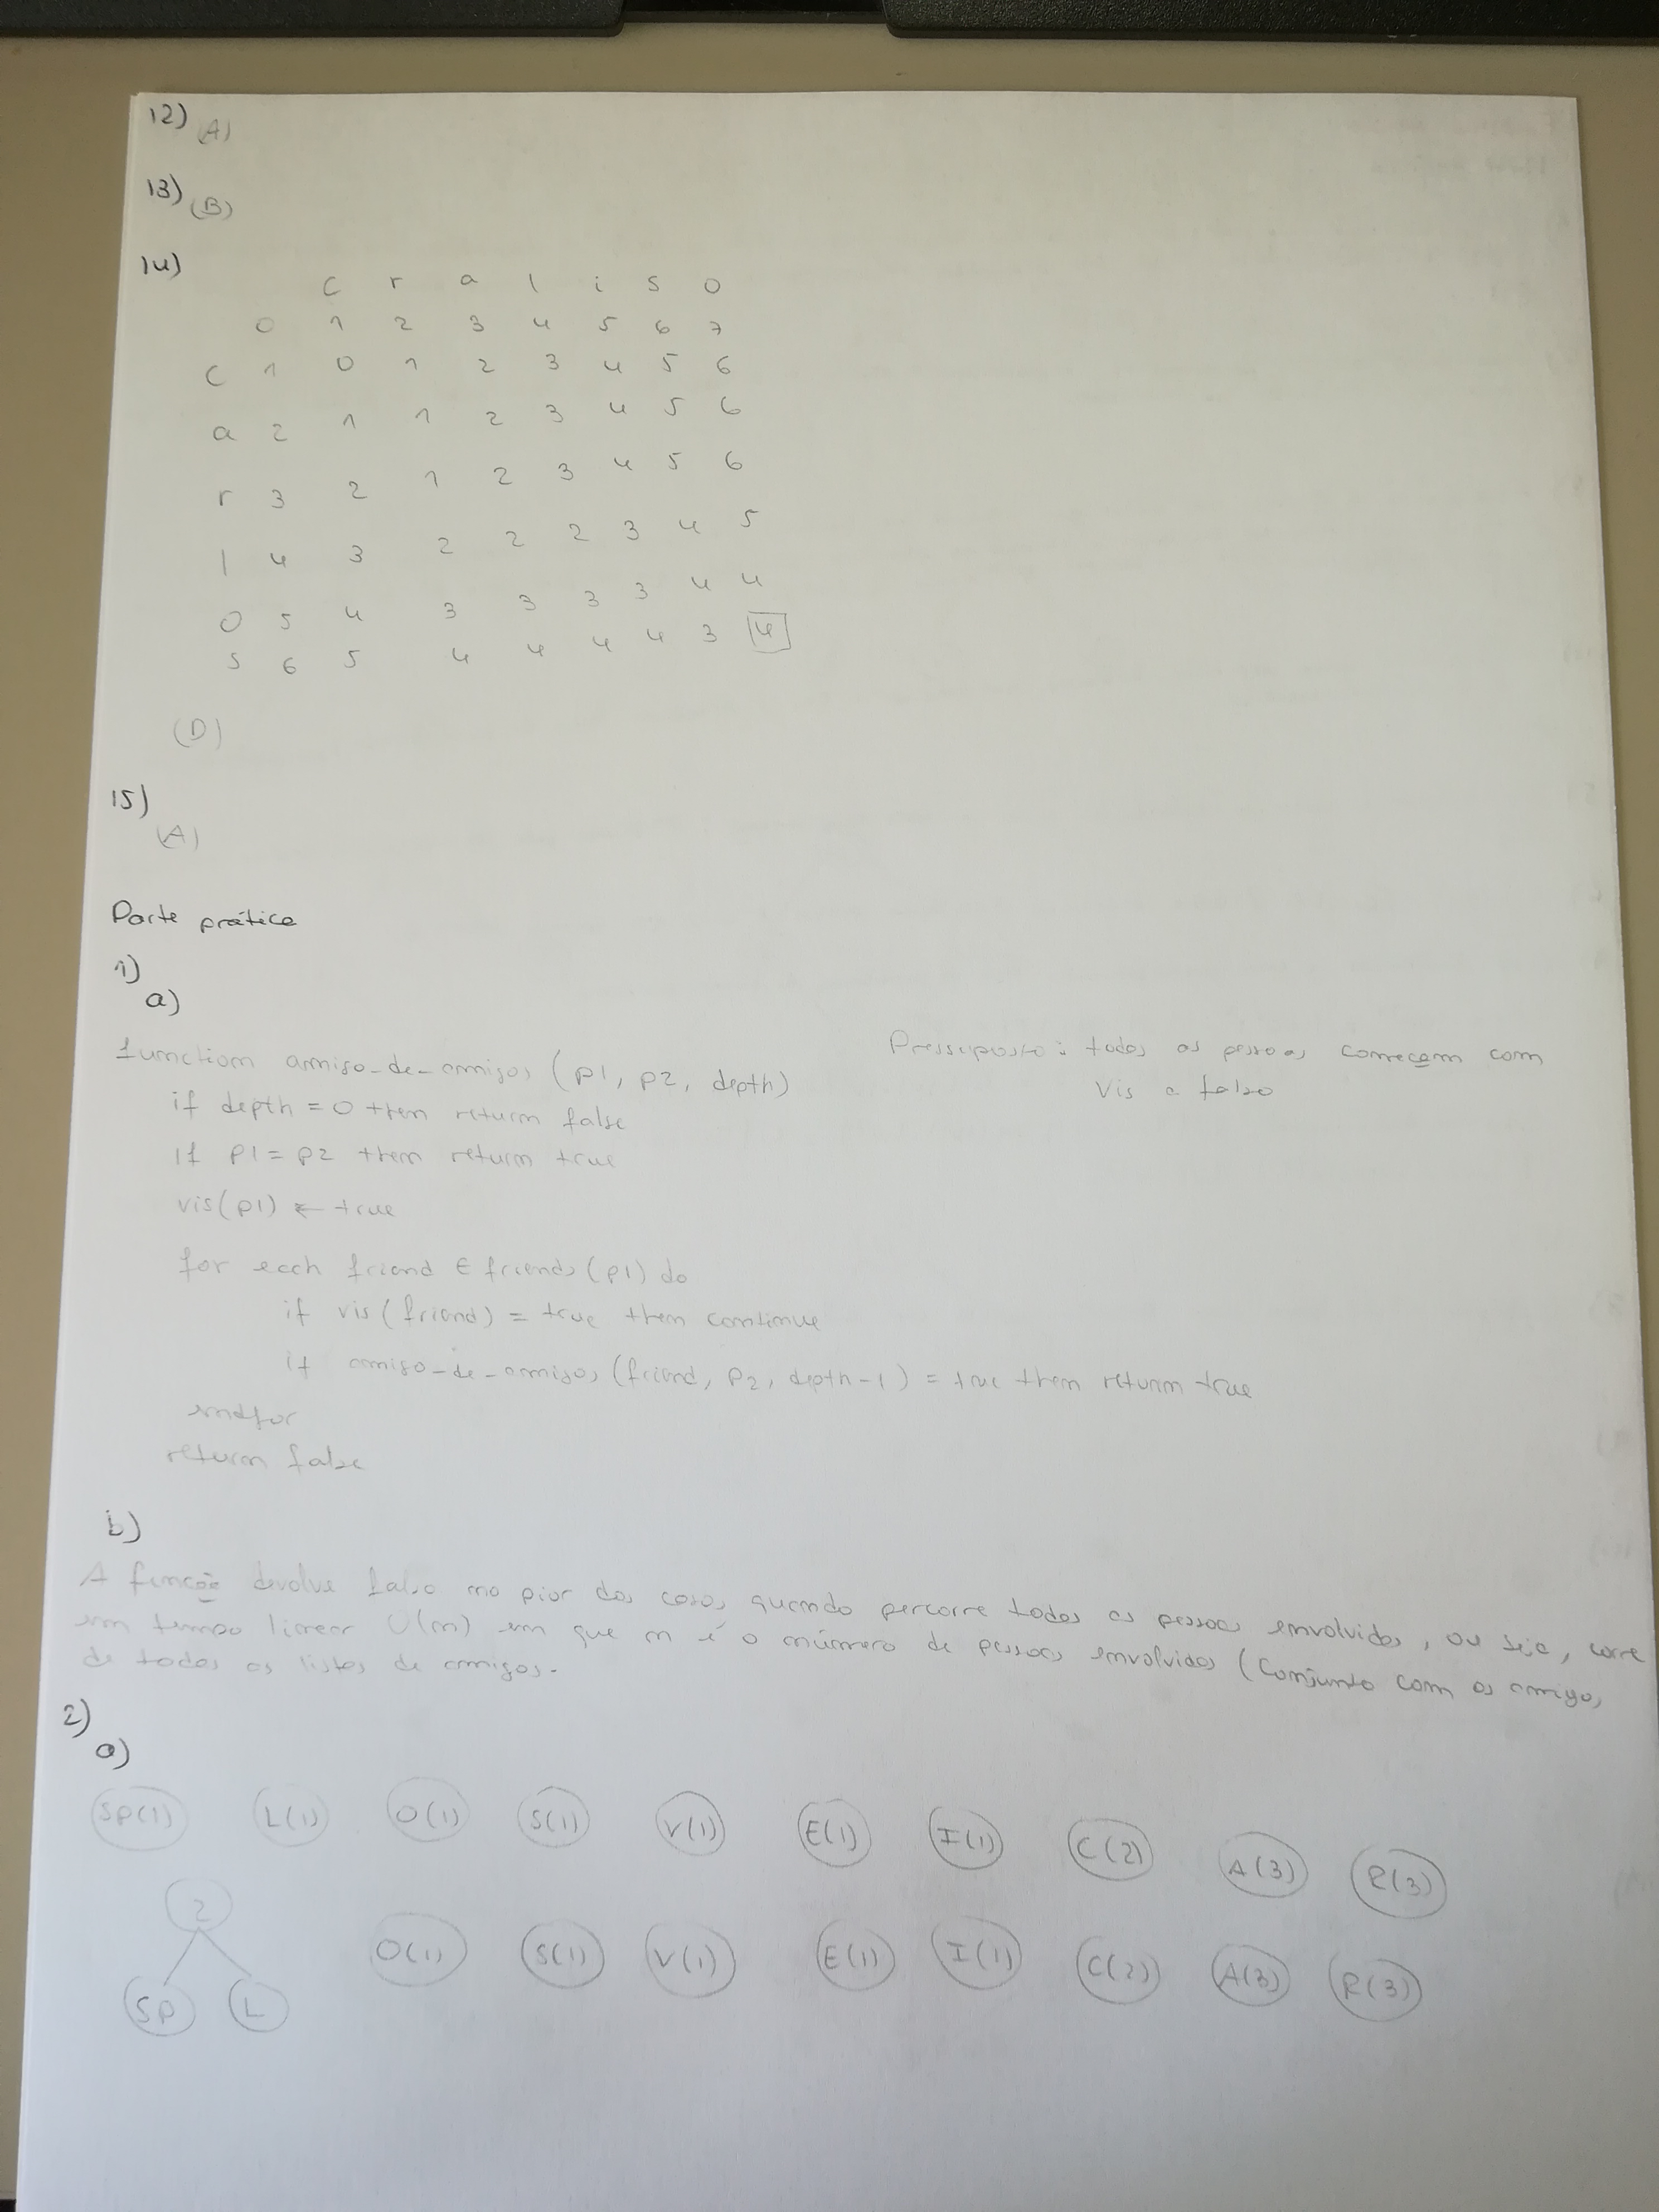 12) (A)
13) (B)
14)
c r a l i s o
0 1 2 3 4 5 6 7
c 1 0 1 2 3 4 5 6
a 2 1 1 2 3 4 5 6
r 3 2 1 2 3 4 5 6
l 4 3 2 2 2 3 4 5
o 5 4 3 3 3 3 4 4
s 6 5 4 4 4 4 3 4
(D)
15)
(A)
Parte prática
1)
a)
function amigo-de-amigos (p1, p2, depth)
Pressuposto: todas as pessoas começam com
vis a falso
if depth = 0 then return false
if p1 = p2 then return true
vis(p1) ← true
for each friend ∈ friends (p1) do
if vis(friend) = true then continue
if amigo-de-amigos (friend, p2, depth-1) = true then return true
endfor
return false
b)
A função devolve falso no pior dos casos, quando percorre todas as pessoas envolvidas, ou seja, corre
em tempo linear O(n) em que n é o número de pessoas envolvidas (Conjunto com os amigos
de todas as listas de amigos.
2)
a)
SP(1) L(1) O(1) S(1) V(1) E(1) I(1) C(2) A(3) R(3)
2 O(1) S(1) V(1) E(1) I(1) C(2) A(3) R(3)
SP L